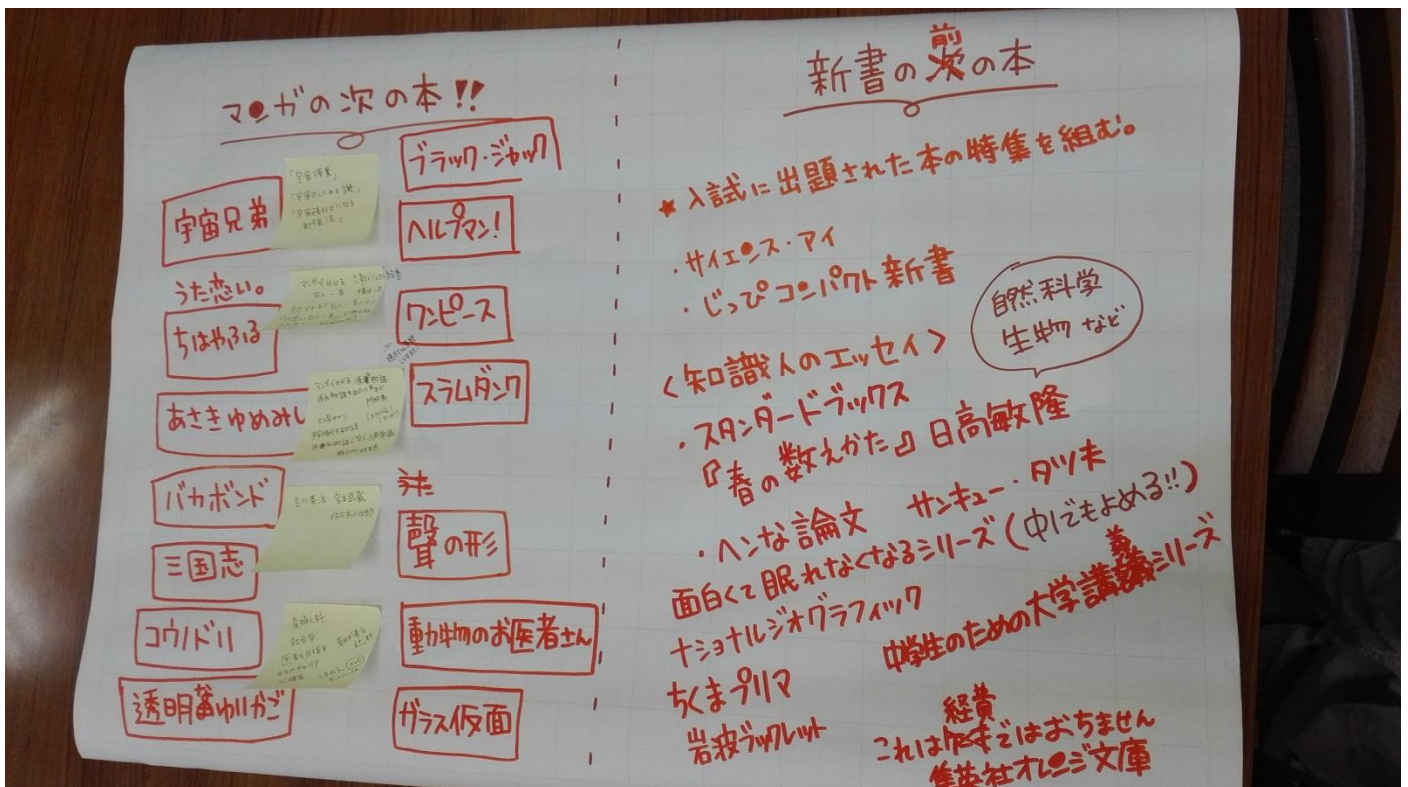 マンガの次の本!!
宇宙兄弟
「宇宙授業」
うた恋い。
ちはやふる
あさきゆめみし
バカボンド
吉川英治 宮本武蔵
三国志
コウノドリ
産婦人科
社会学
透明なゆりかご
ブラック・ジャック
ヘルプマン!
ワンピース
スラムダンク
聲の形
動物のお医者さん
ガラス仮面
新書の前の本
★入試に出題された本の特集を組む。
・サイエンス・アイ
・じっぴコンパクト新書
自然科学
生物など
<知識人のエッセイ>
・スタンダードブックス
『春の数えかた』日高敏隆
・ヘンな論文 サンキュー・タツオ
面白くて眠れなくなるシリーズ(中1でもよめる!!)
ナショナルジオグラフィック
中学生のための大学講義シリーズ
ちくまプリマ
岩波ブックレット
これは経費ではおちません
集英社オレンジ文庫